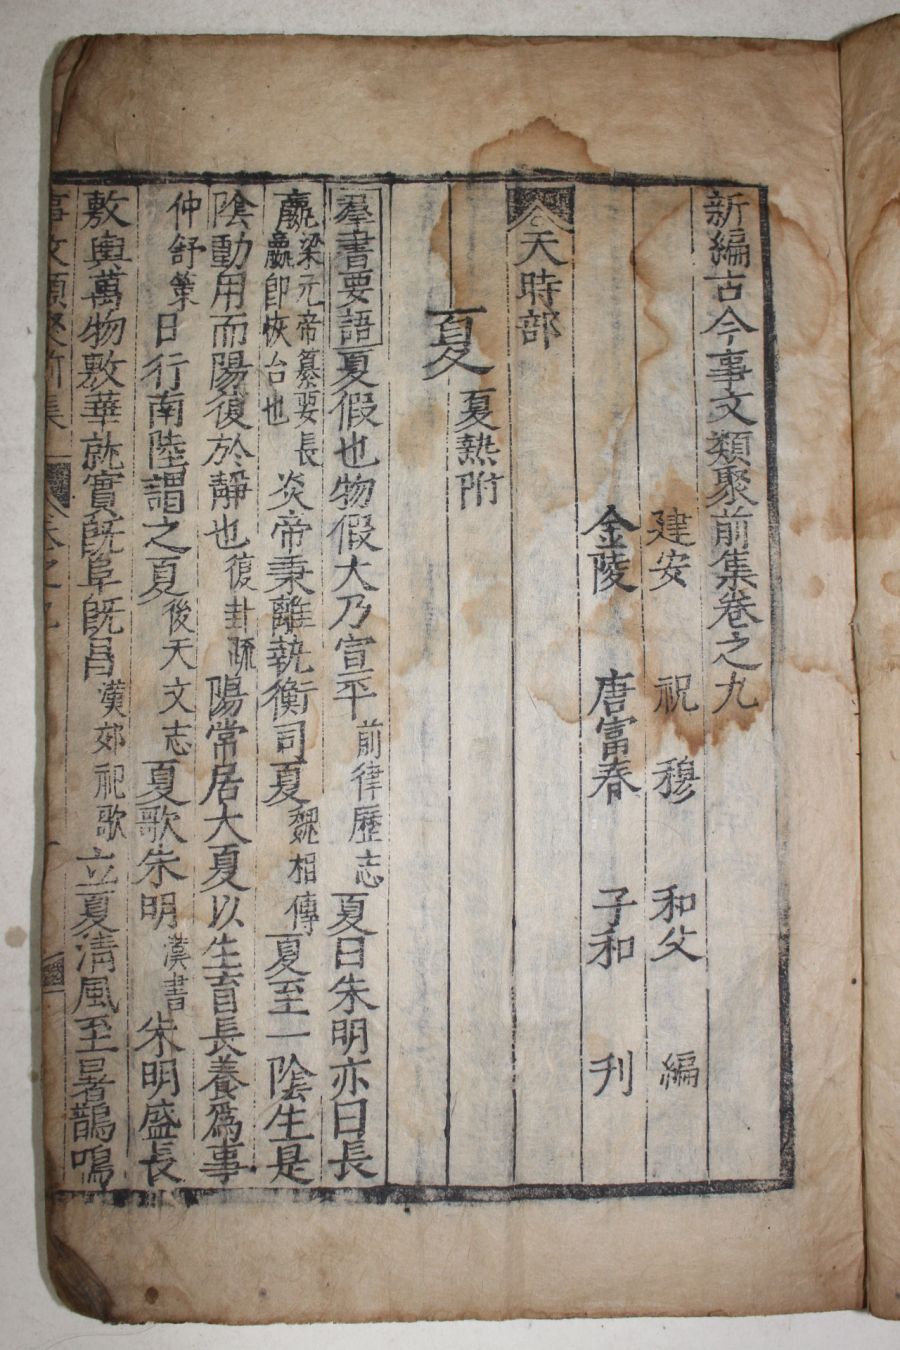 新編古今事文類聚前集卷之九
建安 祝 穆 和父 編
金陵 唐富春 子和 刊
天時部
夏 夏熱附
羣書要語夏假也物假大乃宣平前律歷志夏曰朱明亦曰長
嬴梁元帝纂要長嬴即恢台也炎帝秉離執衡司夏魏相傳夏至一陰生是
陰動用而陽復於靜也復卦疏陽常居大夏以生育長養爲事
仲舒策日行南陸謂之夏後天文志夏歌朱明漢書朱明盛長
敷與萬物敷華就實旣阜旣昌漢郊祀歌立夏清風至暑鵲鳴
事文類聚前集 卷之九